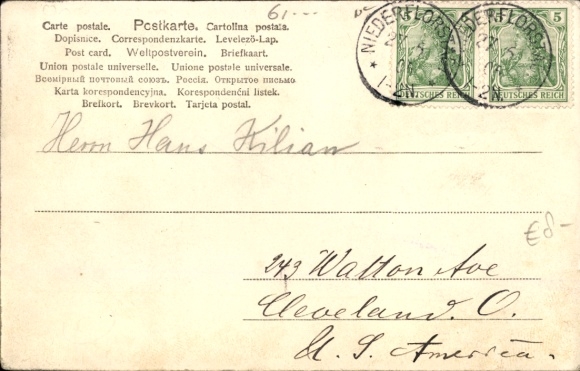 61.--
Carte postale. Postkarte. Cartolina postala.
Dopisnice. Correspondenzkarte. Levelező-Lap.
Post card. Weltpostverein. Briefkaart.
Union postale universelle. Unione postale universale.
Всемірный почтовый союзъ. Россія. Открытое письмо
Karta korespondencyjna. Korespondenčni listek.
Brefkort. Brevkort. Tarjeta postal.
NIEDERFLORSTADT
1-2N.
5
DEUTSCHES REICH
DEUTSCHES REICH
Herrn Hans Kilian
£8-
243 Walton Ave
Cleveland. O.
U. S. America.